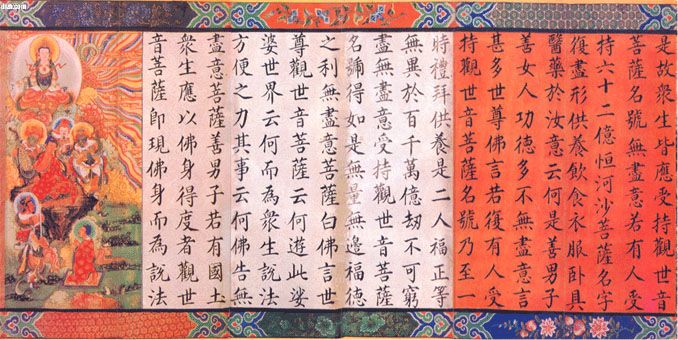 是故衆生皆應受持觀世音
菩薩名號無盡意若有人受
持六十二億恒河沙菩薩名字
復盡形供養飲食衣服卧具
醫藥於汝意云何是善男子
善女人功德多不無盡意言
甚多世尊佛言若復有人受
持觀世音菩薩名號乃至一
時禮拜供養是二人福正等
無異於百千萬億劫不可窮
盡無盡意受持觀世音菩薩
名號得如是無量無邊福德
之利無盡意菩薩白佛言世
尊觀世音菩薩云何遊此娑
婆世界云何而為衆生說法
方便之力其事云何佛告無
盡意菩薩善男子若有國土
衆生應以佛身得度者觀世
音菩薩即現佛身而為說法